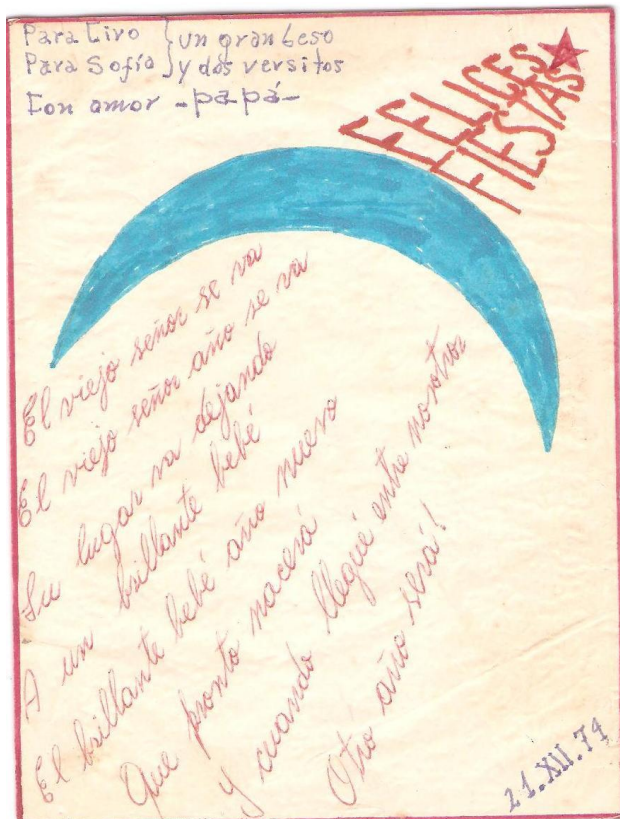 Para Livo } un gran beso
Para Sofía } y dos versitos
Con amor - papá -
FELICES
FIESTAS
El viejo señor se va
El viejo señor año se va
Su lugar va dejando
A un brillante bebé
El brillante bebé año nuevo
Que pronto nacerá
y cuando llegué entre nosotros
Otro año será!
21.XII.79